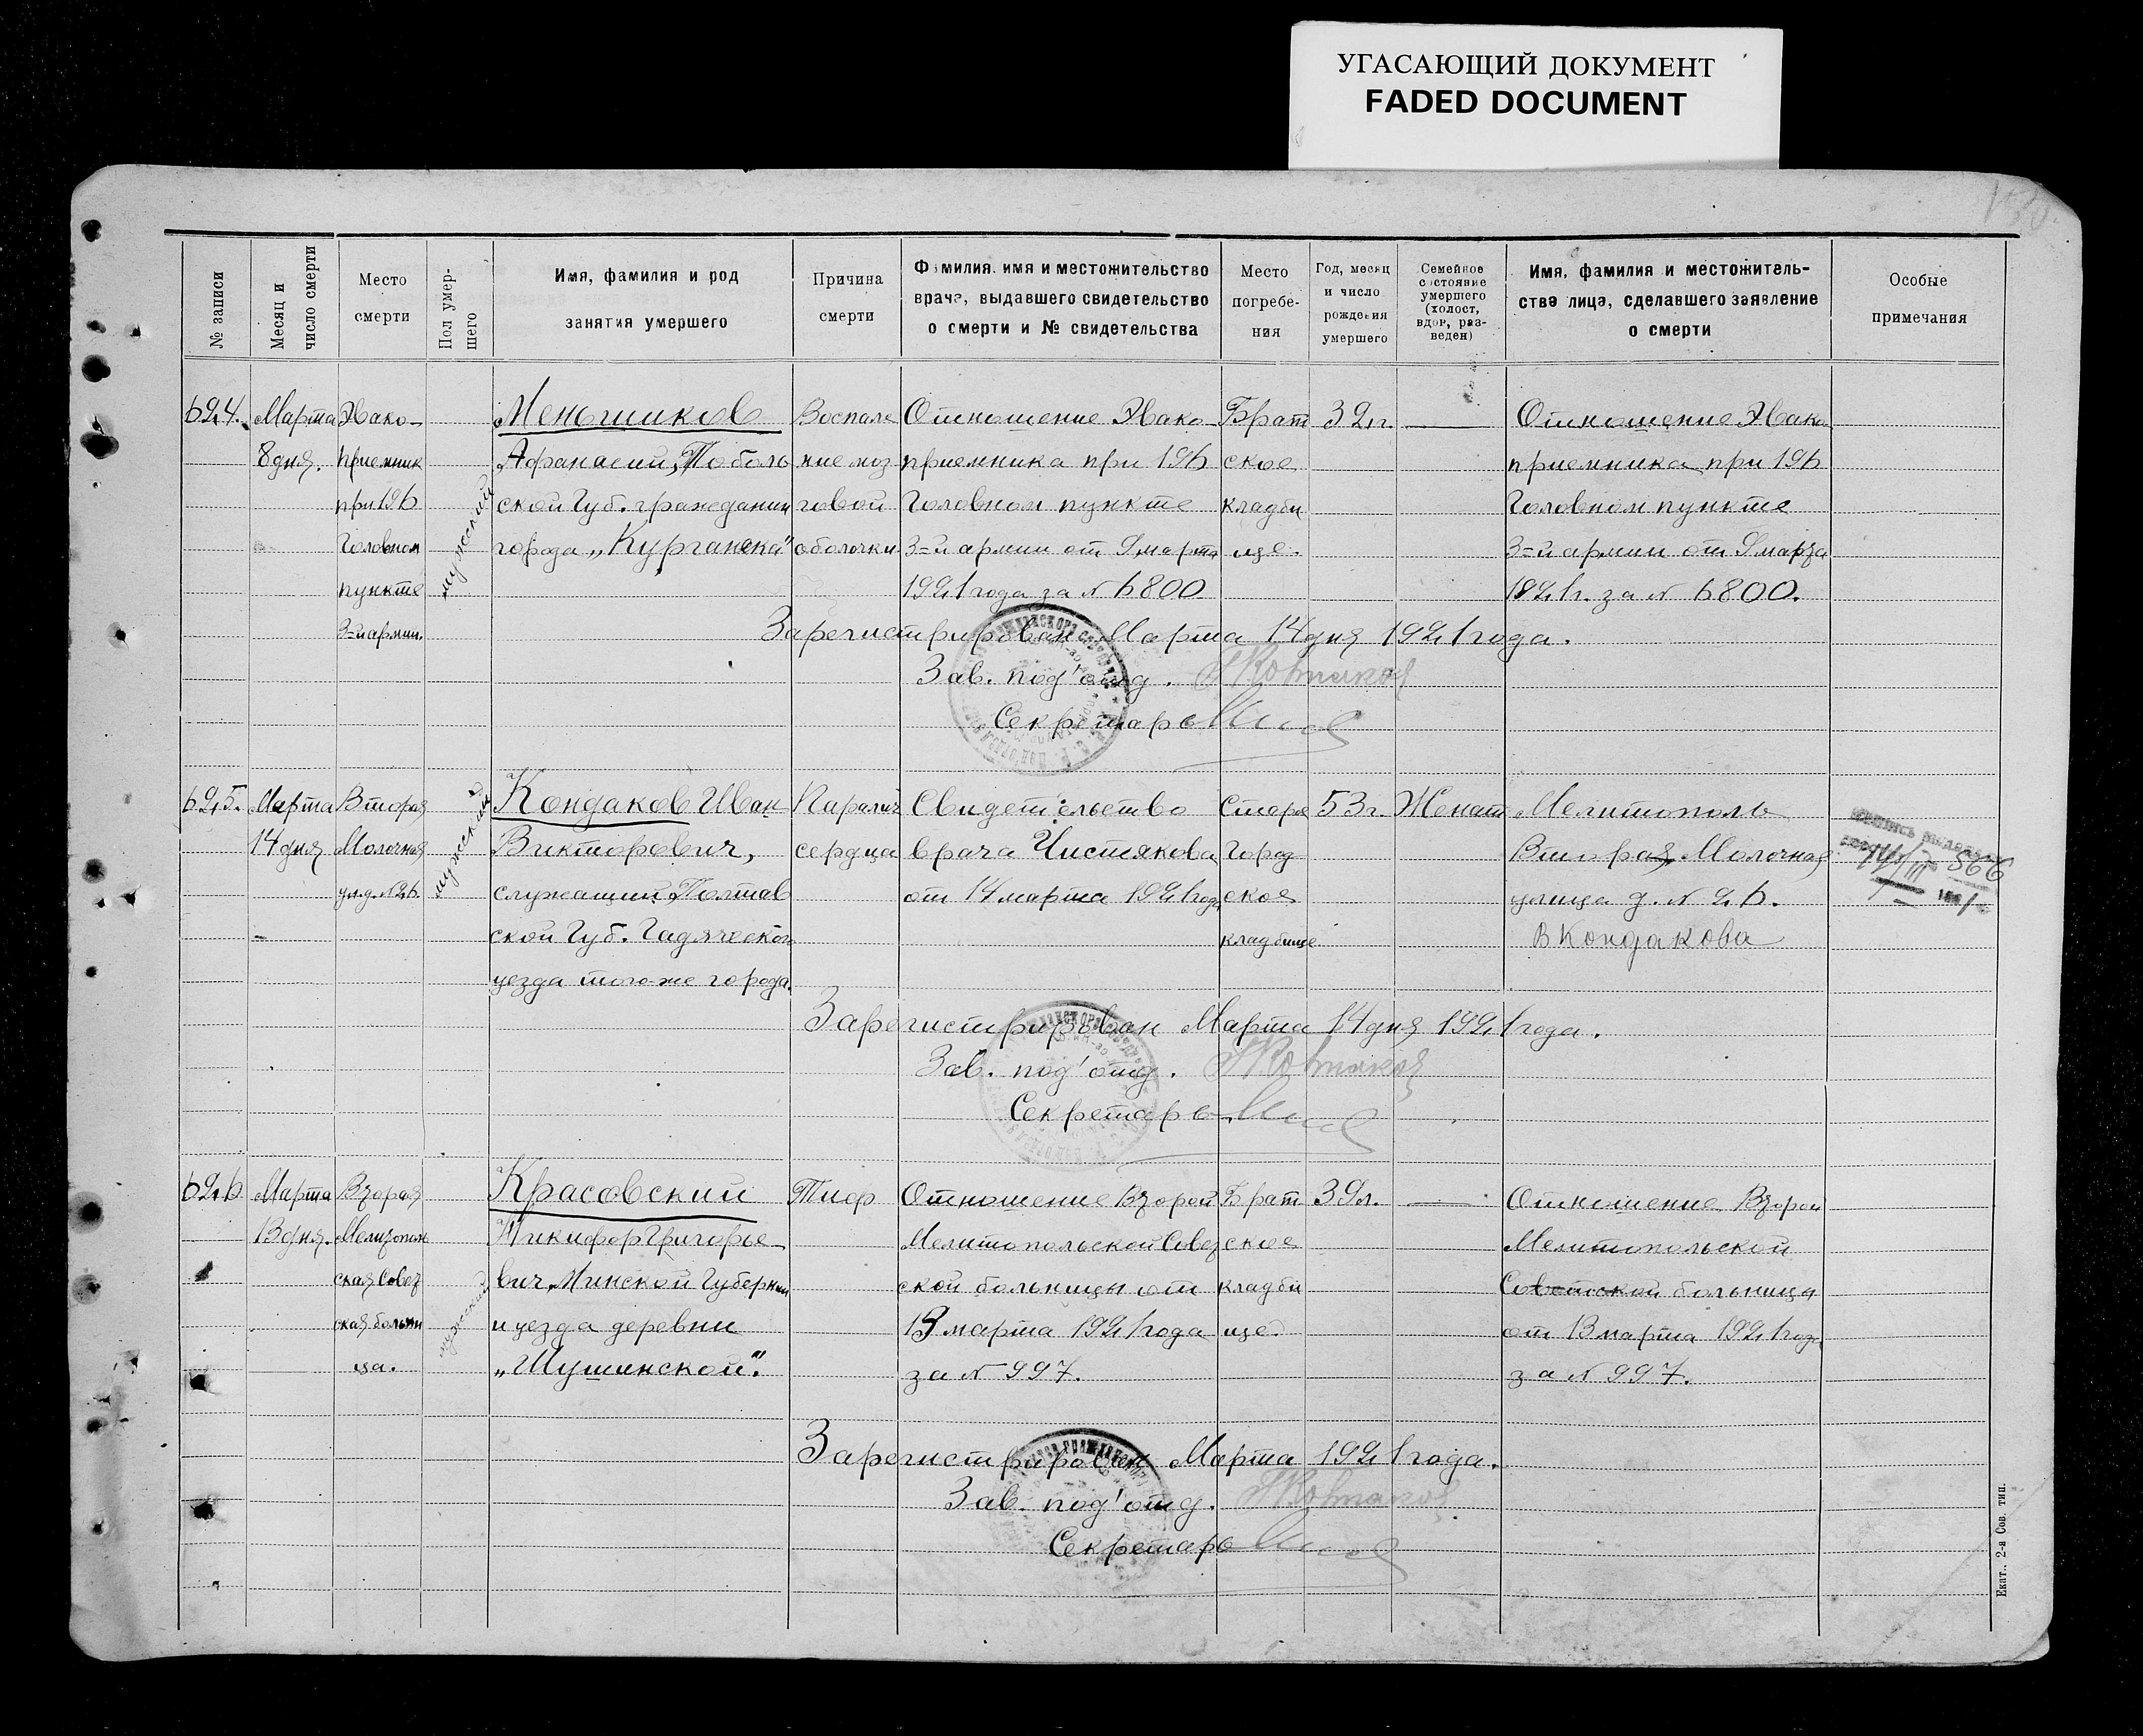 УГАСАЮЩИЙ ДОКУМЕНТ
FADED DOCUMENT
№ записи
Месяц и
число смерти
Место
смерти
Пол умер-
шего
Имя, фамилия и род
занятия умершего
Причина
смерти
Фамилия, имя и местожительство
врача, выдавшего свидетельство
о смерти и № свидетельства
Место
погребе-
ния
Год, месяц
и число
рождения
умершего
Семейное
состояние
умершего
(холост,
вдов, раз-
веден)
Имя, фамилия и местожитель-
ства лица, сделавшего заявление
о смерти
Особые
примечания
624.
Марта
8 дня.
Эвако-
приемник
при 196
Головном
пункте
3=й армии.
мужской
Меньшиков
Афанасий, Тоболь
ской Губ. гражданин
города „Курганска"
Воспале
ние моз
говой
оболочки
Отношение Эвако-
приемника при 196
Головном пункте
3=й армии от 9 марта
1921 года за № 6800
Брат
ское
кладби
ще.
32 г.
Отношение Эвако
приемника при 196
Головном пункте
3=й армии от 9 марта
1921 г. за № 6800.
Зарегистрирован Марта 14 дня 1921 года.
Зав. под'отд.
Секретарь
625.
Марта
14 дня
Вторая
Молочная
ул. д. № 26.
мужской
Кондаков Иван
Викторович,
служащий, Полтав
ской Губ. Гадяческого
уезда того-же города.
Паралич
сердца
Свидетельство
врача Чистякова
от 14 марта 1921 года
Старое
Город
ское
кладбище
53 г.
Женат
Мелитополь
Вторая Молочная
улица д. № 26.
В Кондакова
14/III 866
Зарегистрирован Марта 14 дня 1921 года.
Зав. под'отд.
Секретарь
626
Марта
13 дня.
Вторая
Мелитополь
ская Совет
ская больни
ца.
мужской
Красовский
Никифор Григорье
вич, Минской Губернии
и уезда деревни
„Шушинской".
Тиф
Отношение Второй
Мелитопольской Совет
ской больницы от
13 марта 1921 года
за № 997.
Брат
ское
кладби
ще.
39 л.
Отношение Второй
Мелитопольской
Советской больница
от 13 марта 1921 года
за № 997.
Зарегистрирован Марта 1921 года.
Зав. под'отд.
Секретарь
Екат. 2-я Сов. тип.